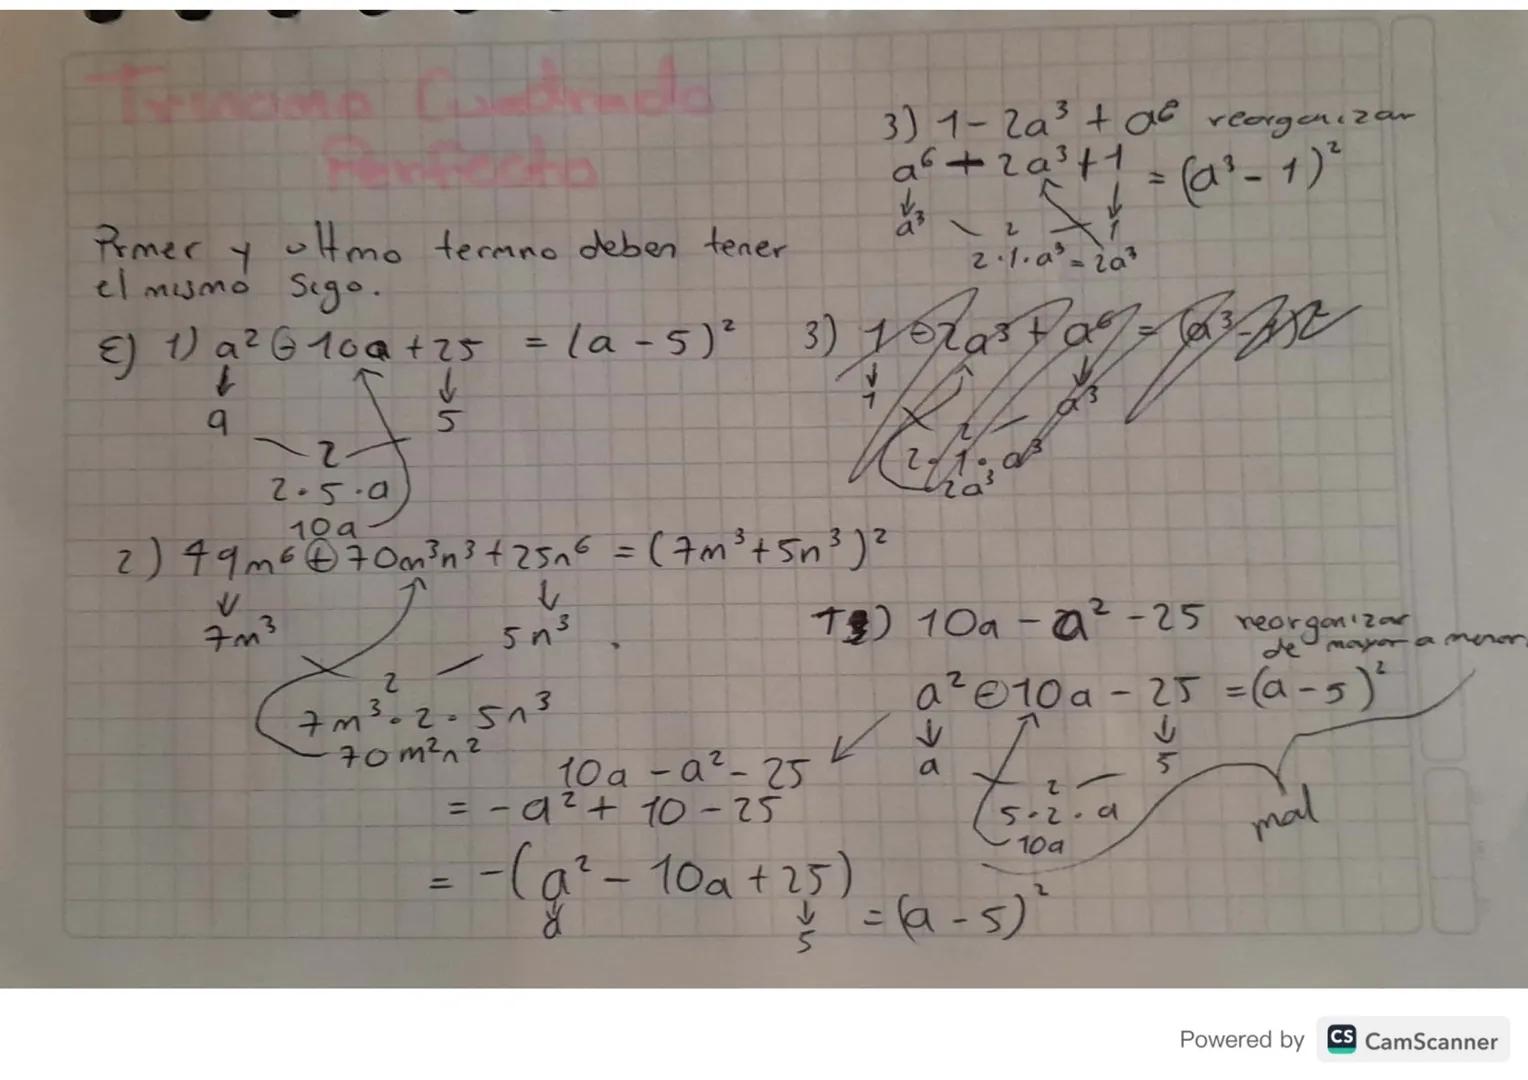 Trinomo Cuadrado
Perfecto
Prmer y ultmo termno deben tener
el mismo sigo.
E) 1) a² ⊖ 10a + 25 = (a - 5)²
↓ ↓
a 5
2
2·5·a
10a
2) 49m⁶ ⊕ 70m³n³ + 25n⁶ = (7m³ + 5n³)²
↓ ↓
7m³ 5n³
2
7m³·2·5n³
70m²n²
3) 1 - 2a³ + a⁶ reorganizar
a⁶ + 2a³ + 1 = (a³ - 1)²
↓ ↓
a³ 2 1
2·1·a³ = 2a³
3) 1 ⊖ 2a³ + a⁶ = (a³ - 1)²
↓ ↓
1 a³
2
2·1·a³
2a³
) 10a - a² - 25 reorganizar
de mayor a menor
a² ⊖ 10a - 25 = (a - 5)²
↓ ↓
a 5
2
5·2·a
10a
mal
10a - a² - 25
= - a² + 10 - 25
= -(a² - 10a + 25)
↓ ↓
a 5
= (a - 5)²
Powered by CS CamScanner